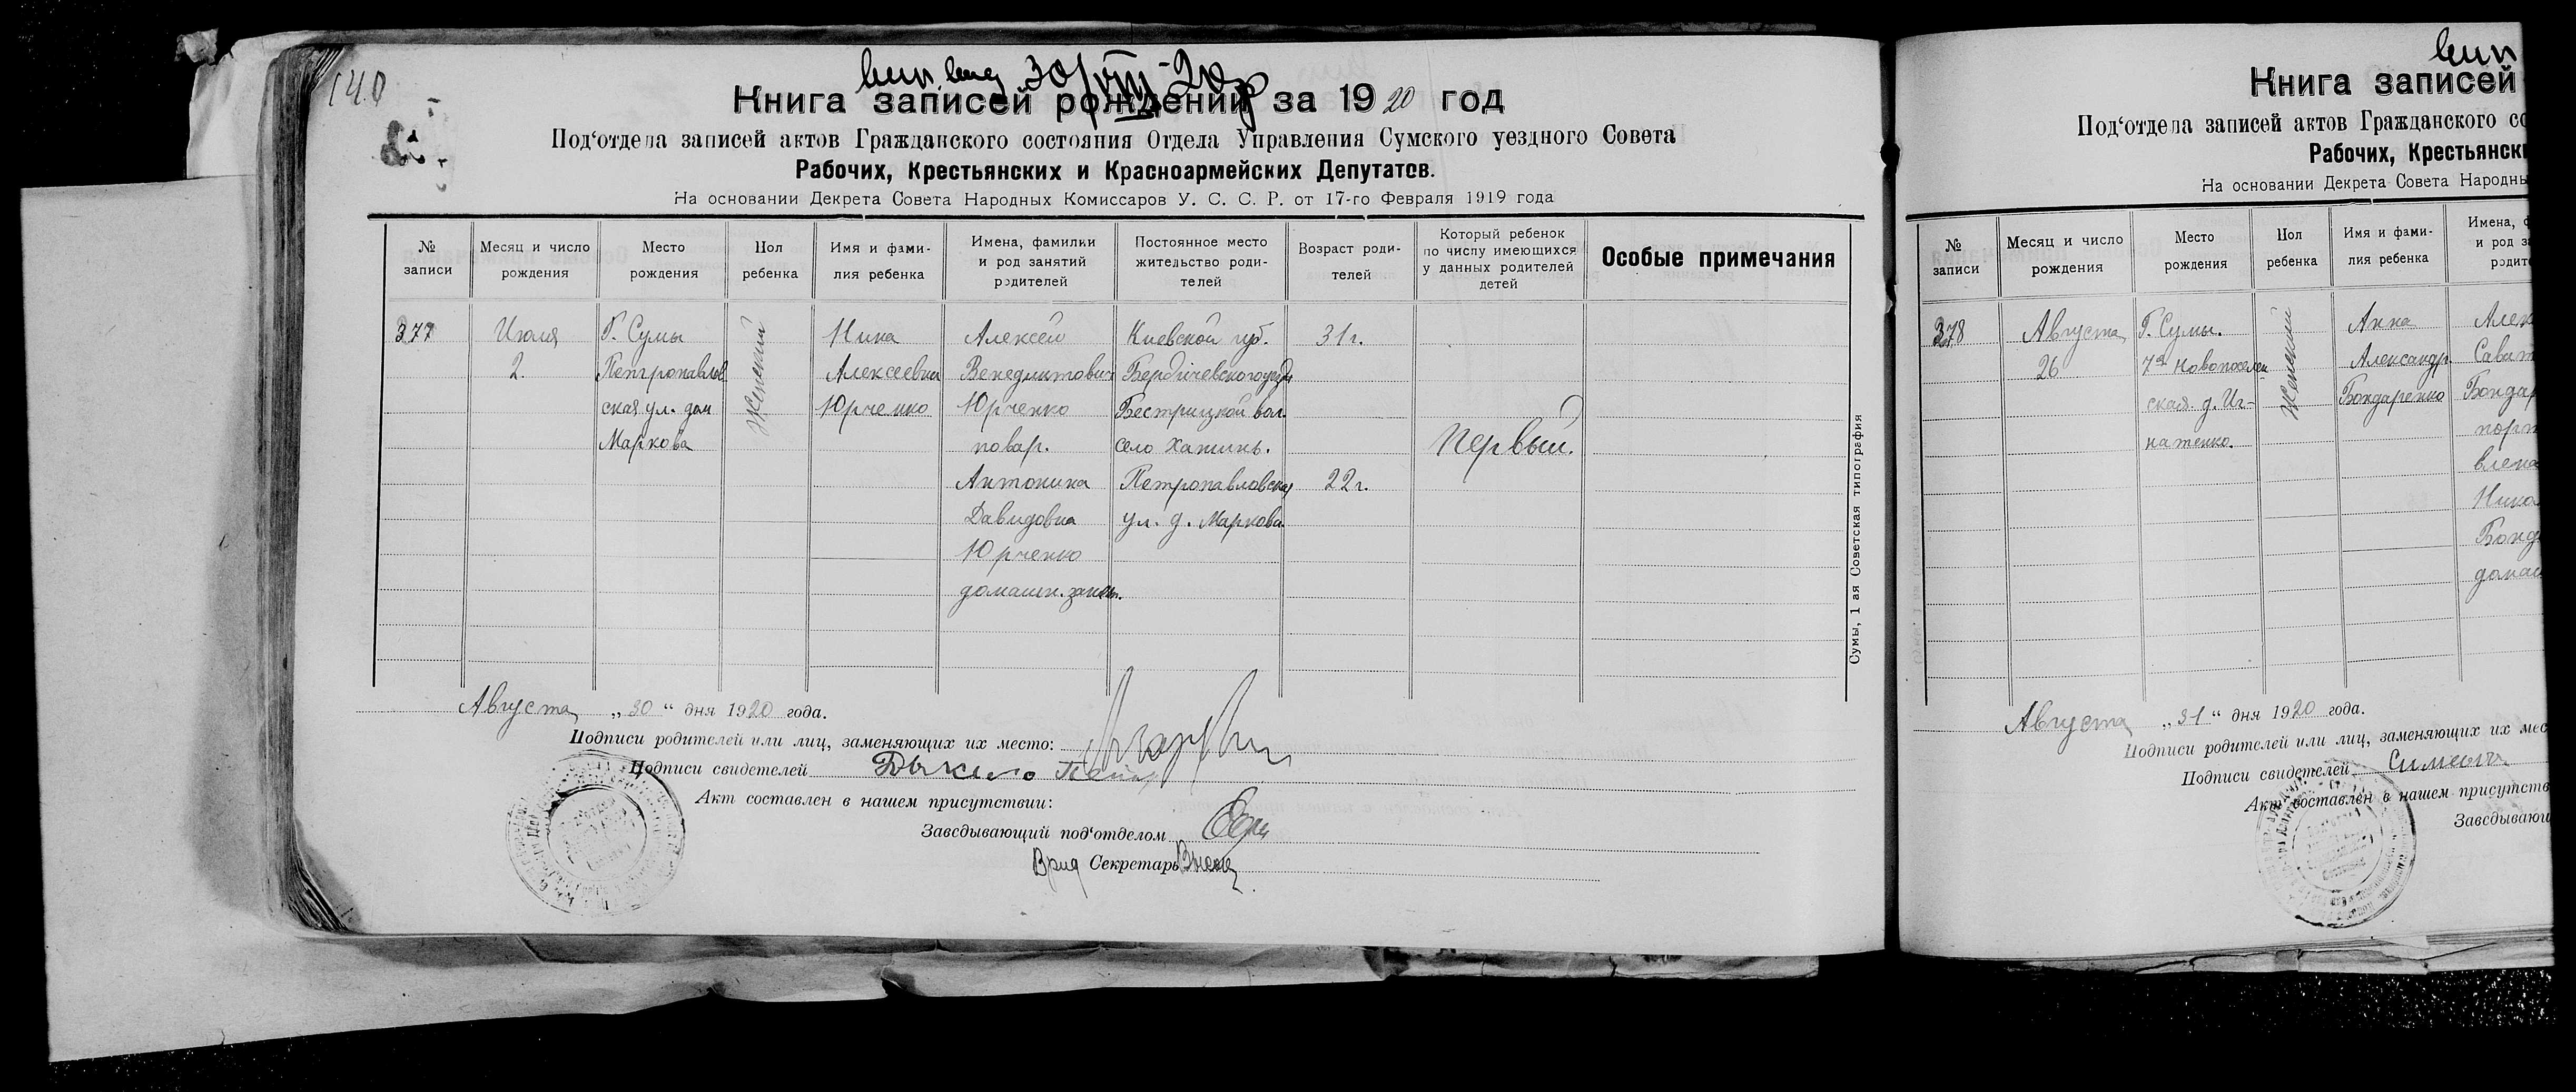 140
30/VIII-20
Книга записей рождений за 1920 год
Под‘отдела записей актов Гражданского состояния Отдела Управления Сумского уездного Совета
Рабочих, Крестьянских и Красноармейских Депутатов.
На основании Декрета Совета Народных Комиссаров У. С. С. Р. от 17-го Февраля 1919 года
№ записи
Месяц и число рождения
Место рождения
Пол ребенка
Имя и фами-
лия ребенка
Имена, фамилки
и род занятий
родителей
Постоянное место
жительство роди-
телей
Возраст роди-
телей
Который ребенок
по числу имеющихся
у данных родителей
детей
Особые примечания
377
Июля
2.
Г. Сумы
Петропавлов
ская ул. дом
Маркова
Женский
Нина
Алексеевна
Юрченко
Алексей
Венедиктович
Юрченко
повар.
Антонина
Давидовна
Юрченко
домашн. занят.
Киевской губ.
Бердичевского уезда
Бестрицкой вол.
село Хатинь.
Петропавловская
ул. д. Маркова
31 г.
22 г.
Первый.
Сумы, 1 ая Советская типография
Августа „30“ дня 1920 года.
Подписи родителей или лиц, заменяющих их место:
Подписи свидетелей
Акт составлен в нашем присутствии:
Заведывающий под‘отделом
Врид Секретарь
Книга записей
Под‘отдела записей актов Гражданского со
Рабочих, Крестьянск
На основании Декрета Совета Народны
№ записи
Месяц и число рождения
Место рождения
Пол ребенка
Имя и фами-
лия ребенка
Имена, ф
и род з
родит
378
Августа
26
Г. Сумы.
7я Новопоселен
ская д. Иг-
натенко.
Женский
Анна
Александр.
Бондаренко
Алек
Сават
Бондар
порт
Нико
Бонд
домаш
Августа „31“ дня 1920 года.
Подписи родителей или лиц, заменяющих их мес
Подписи свидетелей
Акт составлен в нашем присутств
Заведываю